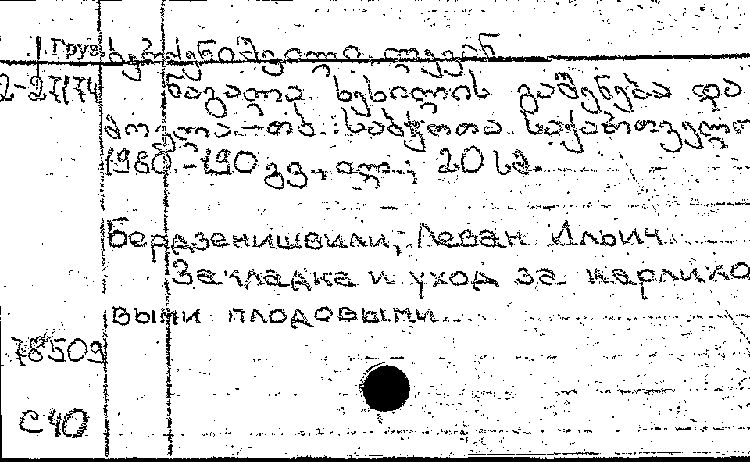 Груз. ბერძენიშვილი ლევან
2-27174 ნაგალა ხეხილის გაშენება და
მოვლა.-თბ.: საბჭოთა საქართველო
1980.-190 გვ., ილ.; 20 სმ.
Бердзенишвили, Леван Ильич
Закладка и уход за карлико
выми плодовыми
78509
С40